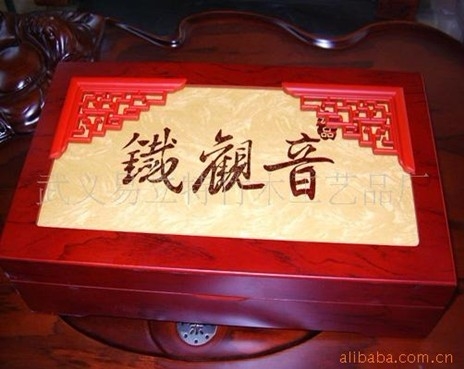 鐵觀音
武义易立特竹木工艺品厂
alibaba.com.cn